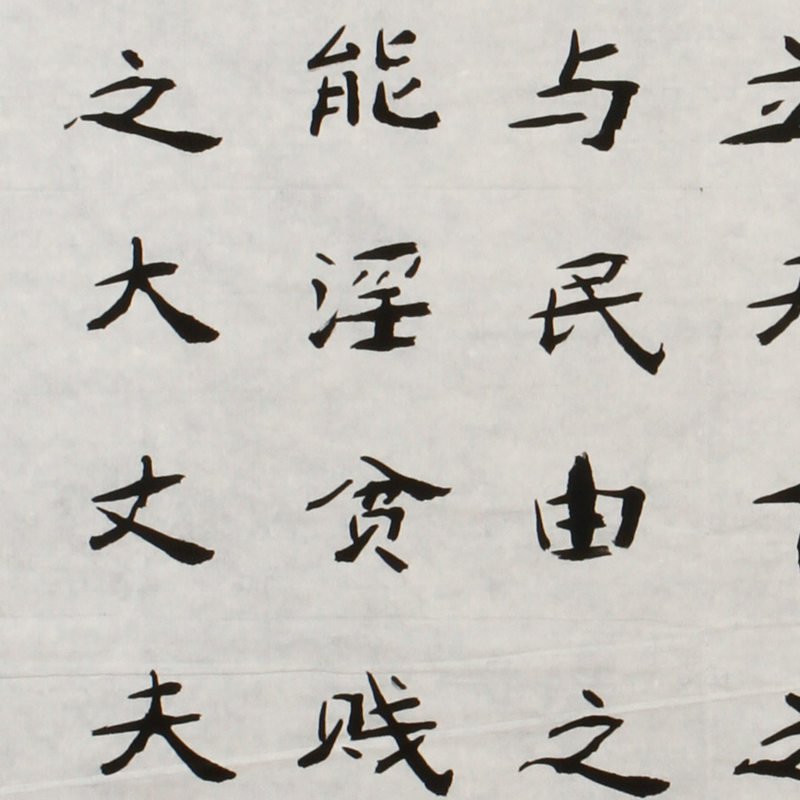 与民由之
能淫贫贱
之大丈夫